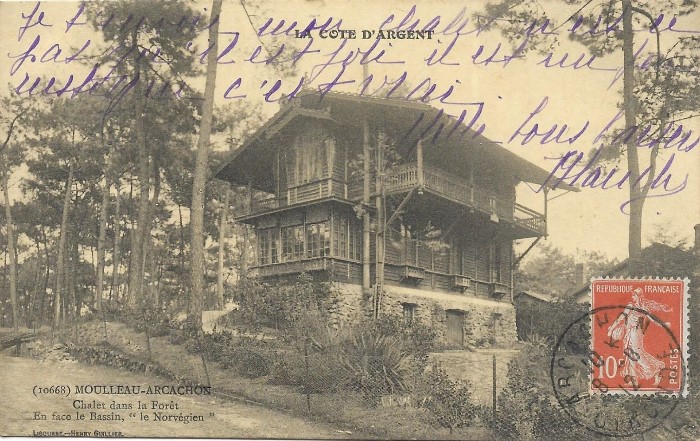 LA COTE D'ARGENT
Je t'envoie mon chalet n'est ce
pas qu'il est joli il est un peu
rustique c'est vrai
Mille bons baisers
Blanche
RÉPUBLIQUE FRANÇAISE
10c
POSTES
ARCACHON
(10668) MOULLEAU-ARCACHON
Chalet dans la Forêt
En face le Bassin, "le Norvégien"
LIBOURNE.—HENRY GUILLIER